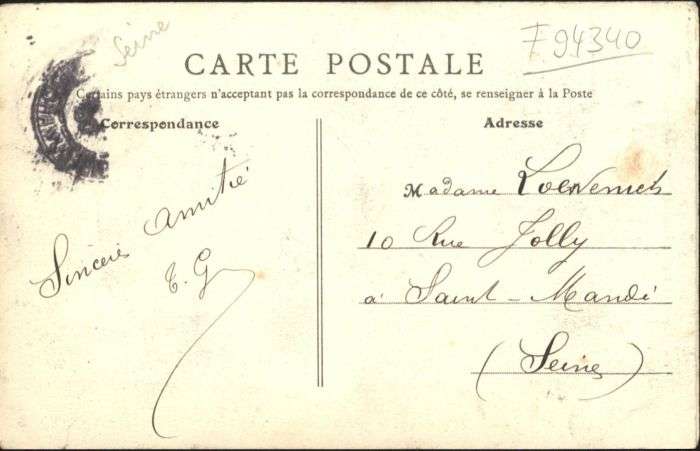 Seine
F 94340
CARTE POSTALE
Certains pays étrangers n'acceptant pas la correspondance de ce côté, se renseigner à la Poste
Correspondance
Adresse
Sincère Amitié
T. G
Madame
10 Rue Jolly
à Saint-Mandé
(Seine)